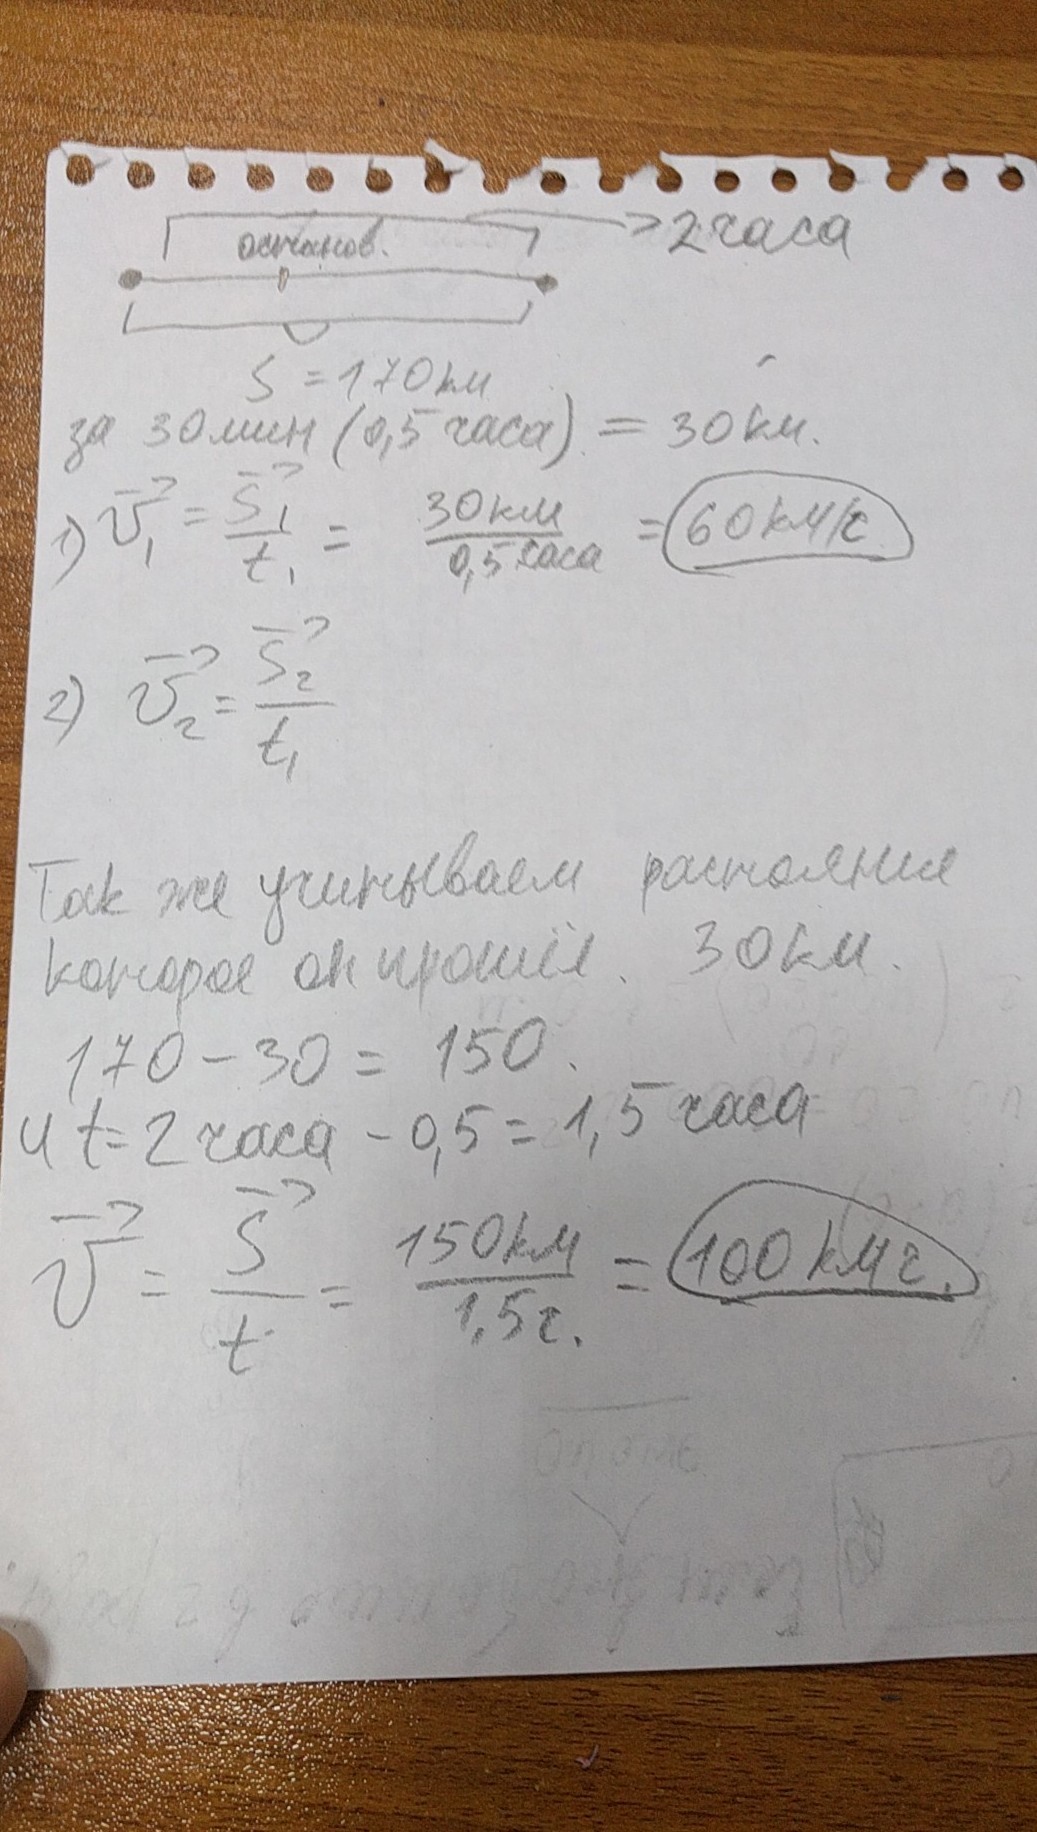 останов.
2 часа
S = 170 км
за 30 мин (0,5 часа) = 30 км.
1) v⃗₁ = S⃗₁ / t₁ = 30 км / 0,5 часа = 60 км/ч
2) v⃗₂ = S⃗₂ / t₁
Так же учитываем растояние
которое он прошёл. 30 км.
170 - 30 = 150.
и t = 2 часа - 0,5 = 1,5 часа
v⃗ = S⃗ / t = 150 км / 1,5 ч. = 100 км ч.